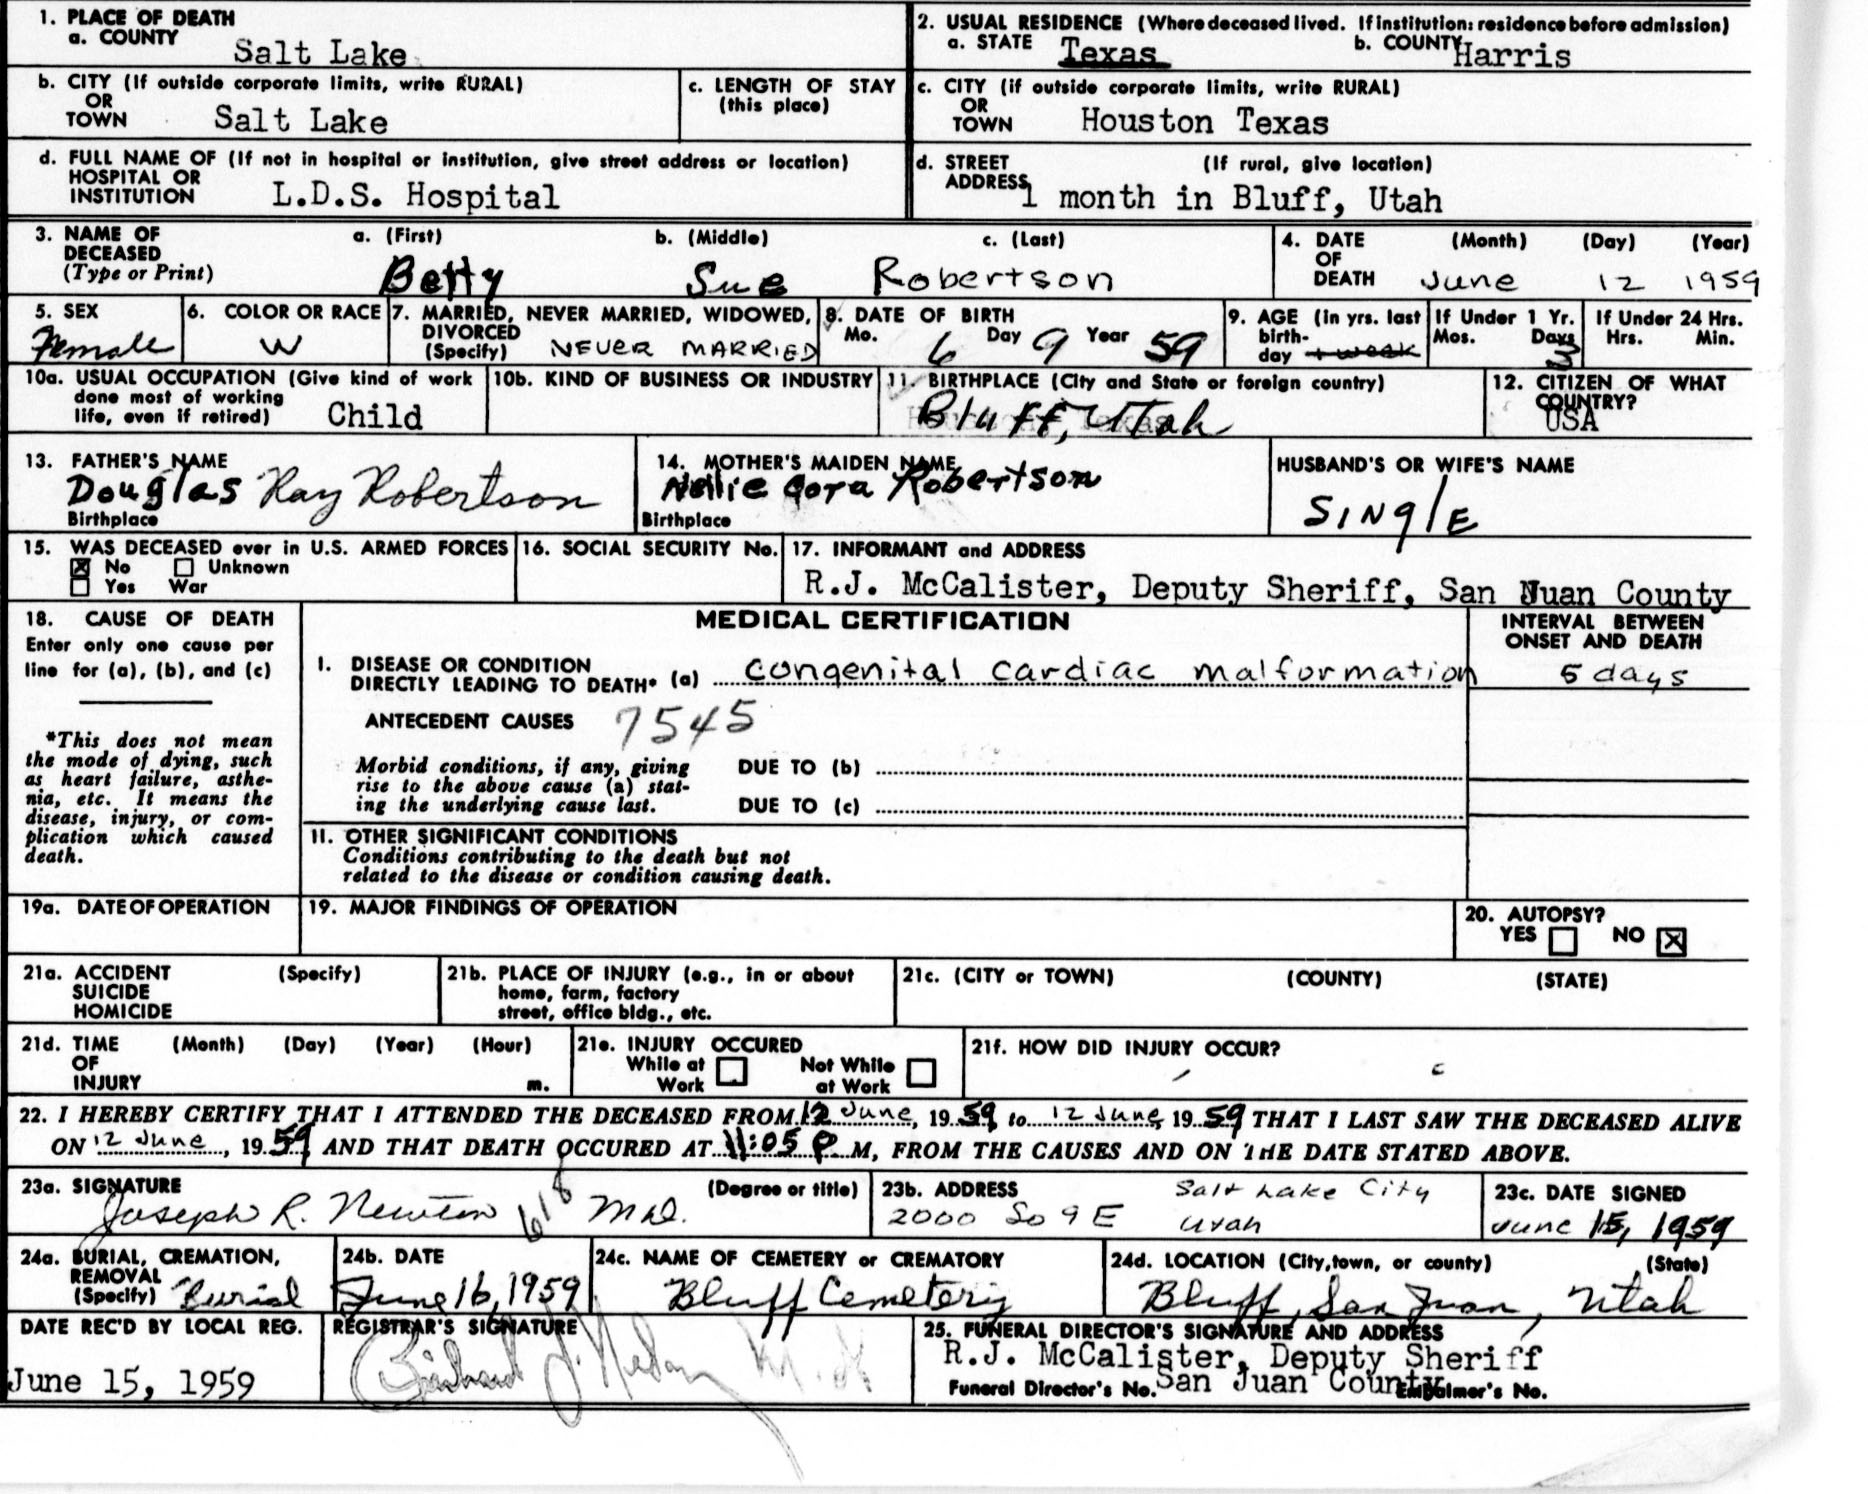 1. PLACE OF DEATH
a. COUNTY
Salt Lake
2. USUAL RESIDENCE (Where deceased lived. If institution: residence before admission)
a. STATE Texas b. COUNTY Harris
b. CITY (If outside corporate limits, write RURAL)
OR
TOWN Salt Lake
c. LENGTH OF STAY
(this place)
c. CITY (if outside corporate limits, write RURAL)
OR
TOWN Houston Texas
d. FULL NAME OF (If not in hospital or institution, give street address or location)
HOSPITAL OR
INSTITUTION L.D.S. Hospital
d. STREET (If rural, give location)
ADDRESS 1 month in Bluff, Utah
3. NAME OF a. (First) b. (Middle) c. (Last)
DECEASED
(Type or Print) Betty Sue Robertson
4. DATE (Month) (Day) (Year)
OF
DEATH June 12 1959
5. SEX
Female
6. COLOR OR RACE
W
7. MARRIED, NEVER MARRIED, WIDOWED,
DIVORCED
(Specify) NEVER MARRIED
8. DATE OF BIRTH
Mo. 6 Day 9 Year 59
9. AGE (in yrs. last
birth-
day 1 week
If Under 1 Yr.
Mos. Days
3
If Under 24 Hrs.
Hrs. Min.
10a. USUAL OCCUPATION (Give kind of work
done most of working
life, even if retired) Child
10b. KIND OF BUSINESS OR INDUSTRY
11. BIRTHPLACE (City and State or foreign country)
Bluff, Utah
12. CITIZEN OF WHAT
COUNTRY?
USA
13. FATHER'S NAME
Douglas Ray Robertson
Birthplace
14. MOTHER'S MAIDEN NAME
Nellie Cora Robertson
Birthplace
HUSBAND'S OR WIFE'S NAME
SINGLE
15. WAS DECEASED ever in U.S. ARMED FORCES
No Unknown
Yes War
16. SOCIAL SECURITY No.
17. INFORMANT and ADDRESS
R.J. McCalister, Deputy Sheriff, San Juan County
18. CAUSE OF DEATH
Enter only one cause per
line for (a), (b), and (c)
*This does not mean
the mode of dying, such
as heart failure, asthe-
nia, etc. It means the
disease, injury, or com-
plication which caused
death.
MEDICAL CERTIFICATION
INTERVAL BETWEEN
ONSET AND DEATH
I. DISEASE OR CONDITION
DIRECTLY LEADING TO DEATH* (a) congenital cardiac malformation 5 days
ANTECEDENT CAUSES 7545
Morbid conditions, if any, giving
rise to the above cause (a) stat-
ing the underlying cause last.
DUE TO (b)
DUE TO (c)
11. OTHER SIGNIFICANT CONDITIONS
Conditions contributing to the death but not
related to the disease or condition causing death.
19a. DATE OF OPERATION
19. MAJOR FINDINGS OF OPERATION
20. AUTOPSY?
YES NO
21a. ACCIDENT (Specify)
SUICIDE
HOMICIDE
21b. PLACE OF INJURY (e.g., in or about
home, farm, factory
street, office bldg., etc.
21c. (CITY or TOWN) (COUNTY) (STATE)
21d. TIME (Month) (Day) (Year) (Hour)
OF
INJURY m.
21e. INJURY OCCURED
While at Not While
Work at Work
21f. HOW DID INJURY OCCUR?
22. I HEREBY CERTIFY THAT I ATTENDED THE DECEASED FROM 12 June, 1959 to 12 June, 1959 THAT I LAST SAW THE DECEASED ALIVE
ON 12 June, 1959 AND THAT DEATH OCCURED AT 11:05 P M, FROM THE CAUSES AND ON THE DATE STATED ABOVE.
23a. SIGNATURE (Degree or title)
Joseph R. Newton 618 M.D.
23b. ADDRESS Salt Lake City
2000 So 9 E Utah
23c. DATE SIGNED
June 15, 1959
24a. BURIAL, CREMATION,
REMOVAL
(Specify) Burial
24b. DATE
June 16, 1959
24c. NAME OF CEMETERY or CREMATORY
Bluff Cemetery
24d. LOCATION (City, town, or county) (State)
Bluff, San Juan, Utah
DATE REC'D BY LOCAL REG.
June 15, 1959
REGISTRAR'S SIGNATURE
25. FUNERAL DIRECTOR'S SIGNATURE AND ADDRESS
R.J. McCalister, Deputy Sheriff
San Juan County
Funeral Director's No. Embalmer's No.